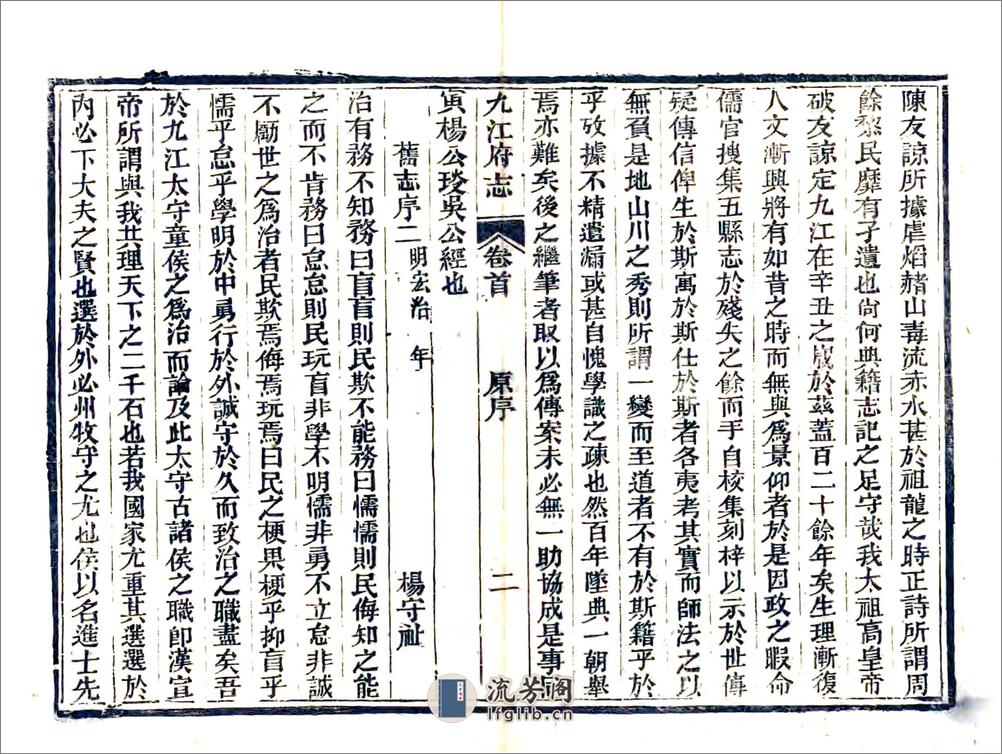 陳友諒所據虐熖赭山毒流赤水甚於祖龍之時正詩所謂周
餘黎民靡有孑遺也尙何典籍志記之足守哉我太祖高皇帝
破友諒定九江在辛丑之歲於茲蓋百二十餘年矣生理漸復
人文漸興將有如昔之時而無與爲景仰者於是因政之暇命
儒官搜集五縣志於殘失之餘而手自校集刻梓以示於世傳
疑傳信俾生於斯寓於斯仕於斯者各夷考其實而師法之以
無負是地山川之秀則所謂一變而至道者不有於斯籍乎於
乎攷據不精遺漏或甚自愧學識之疎也然百年墜典一朝舉
焉亦難矣後之繼筆者取以爲傳案未必無一助協成是事同
寅楊公琰吳公經也
九江府志 卷首 原序 二
舊志序二 明宏治 年 楊守阯
治有務不知務曰盲盲則民欺不能務曰懦懦則民侮知之能
之而不肯務曰怠怠則民玩盲非學不明懦非勇不立怠非誠
不勵世之爲治者民欺焉侮焉玩焉曰民之梗果梗乎抑盲乎
懦乎怠乎學明於中勇行於外誠守於久而致治之職盡矣吾
於九江太守童侯之爲治而論及此太守古諸侯之職卽漢宣
帝所謂與我共理天下之二千石也若我國家尤重其選選於
內必下大夫之賢也選於外必州牧守之尤也侯以名進士先
流芳閣
lfglib.cn